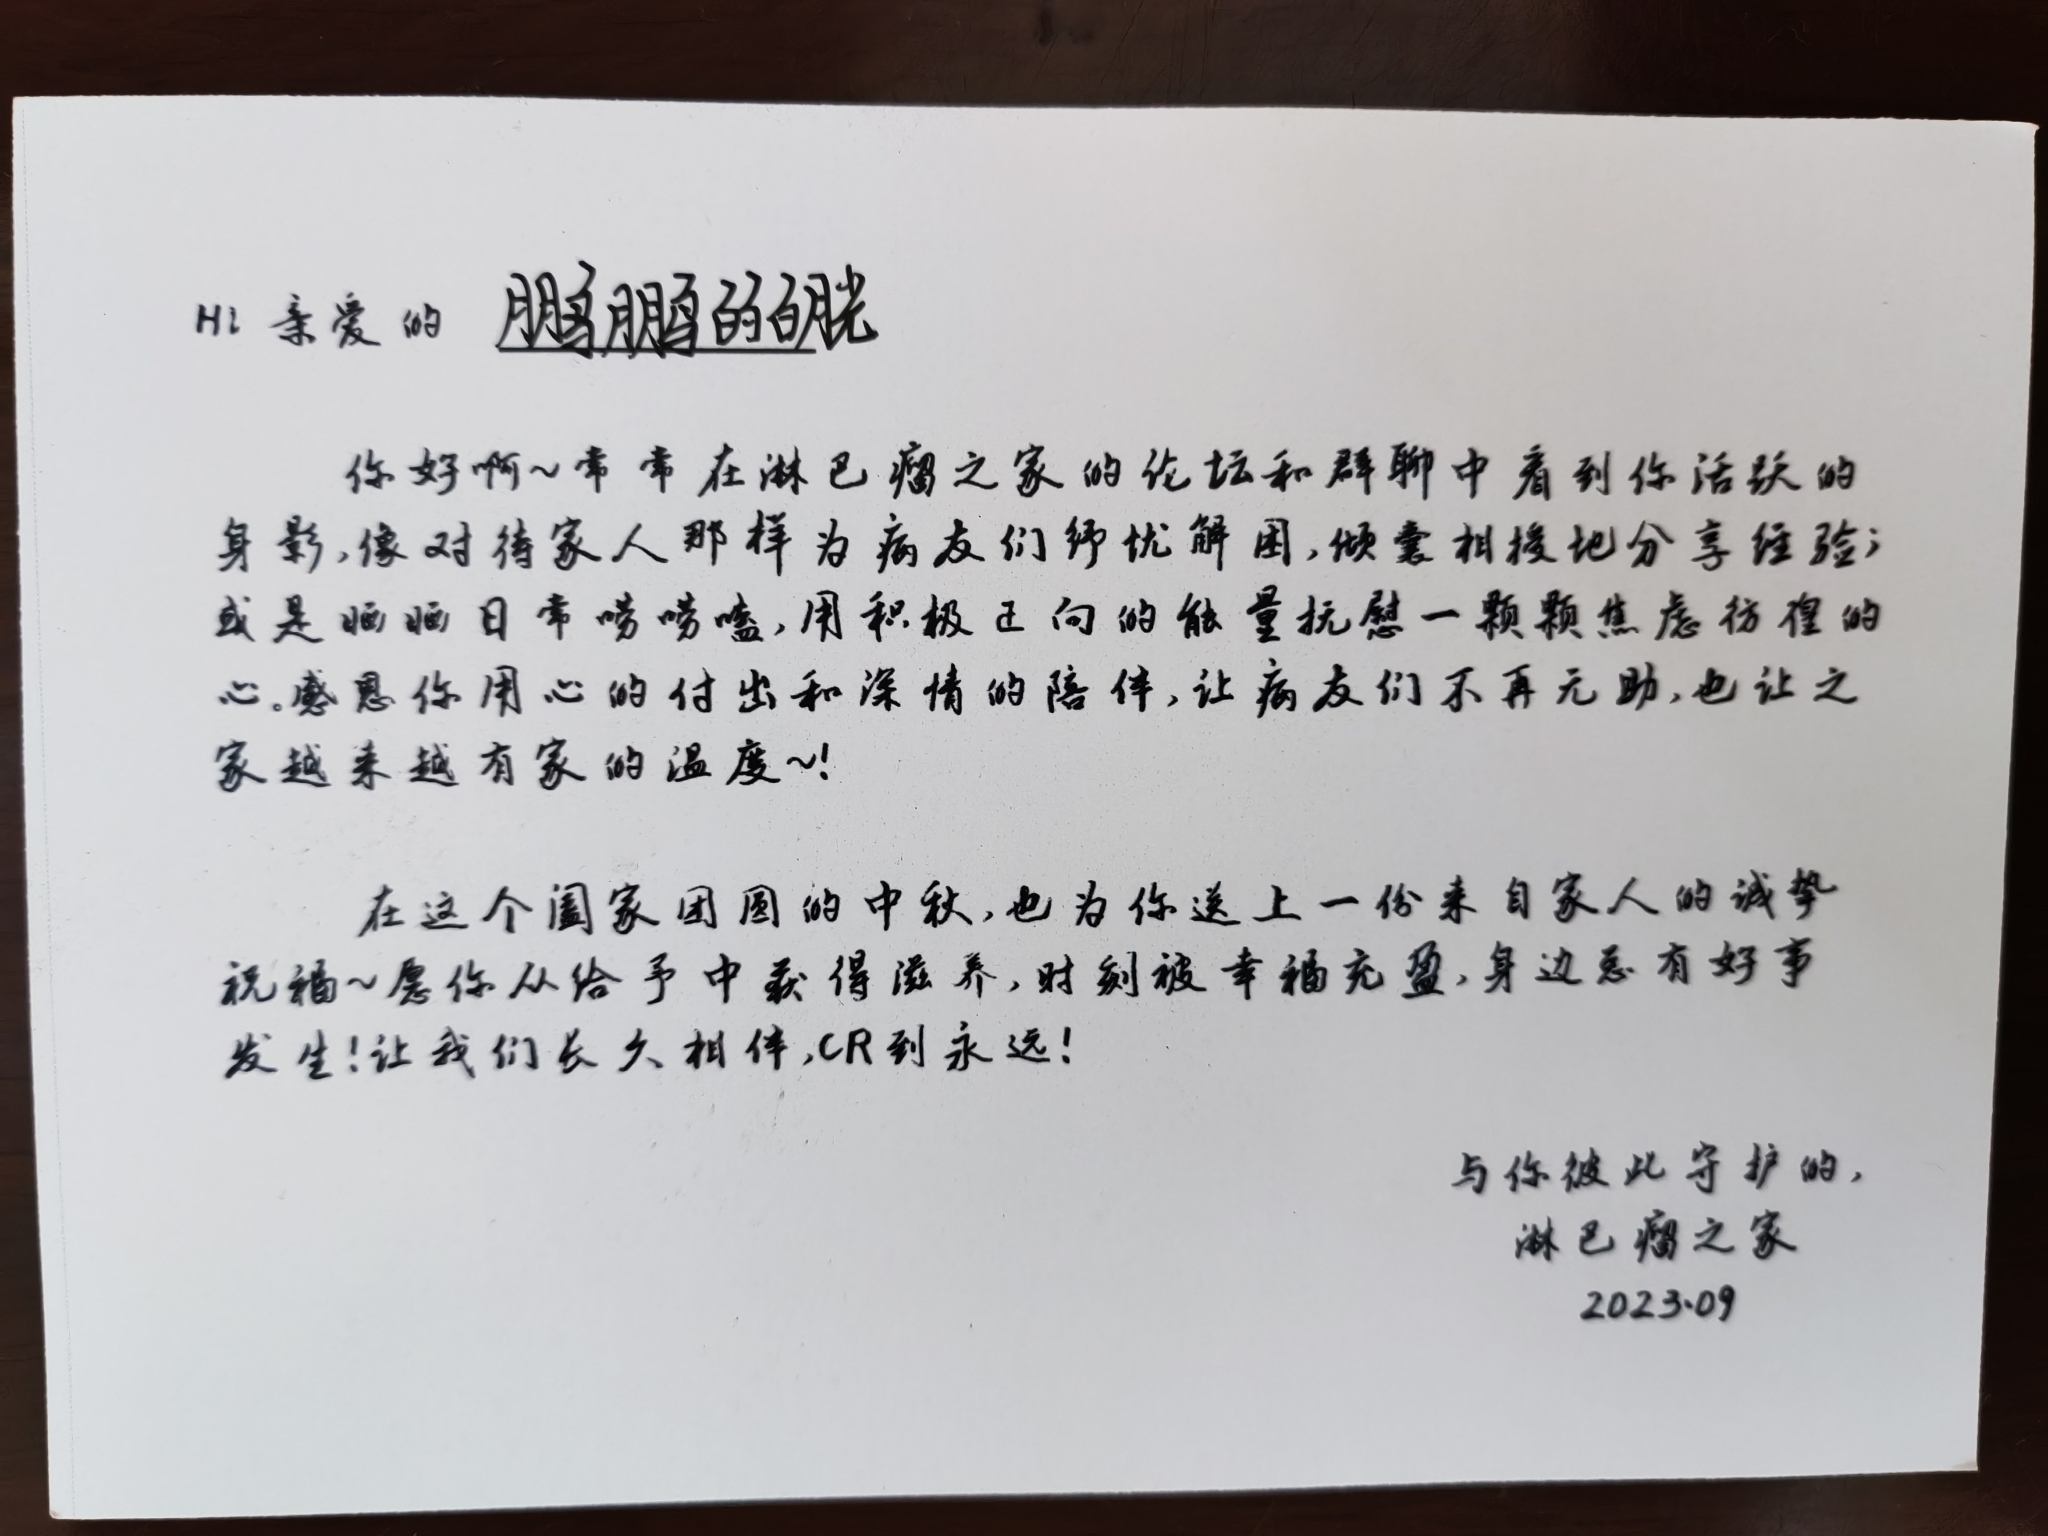 Hi 亲爱的 鹏鹏的白月光
你好啊~常常在淋巴瘤之家的论坛和群聊中看到你活跃的
身影,像对待家人那样为病友们纾忧解困,倾囊相授地分享经验;
或是晒晒日常唠唠嗑,用积极正向的能量抚慰一颗颗焦虑彷徨的
心。感恩你用心的付出和深情的陪伴,让病友们不再无助,也让之
家越来越有家的温度~!
在这个阖家团圆的中秋,也为你送上一份来自家人的诚挚
祝福~愿你从给予中获得滋养,时刻被幸福充盈,身边总有好事
发生!让我们长久相伴,CR到永远!
与你彼此守护的,
淋巴瘤之家
2023.09